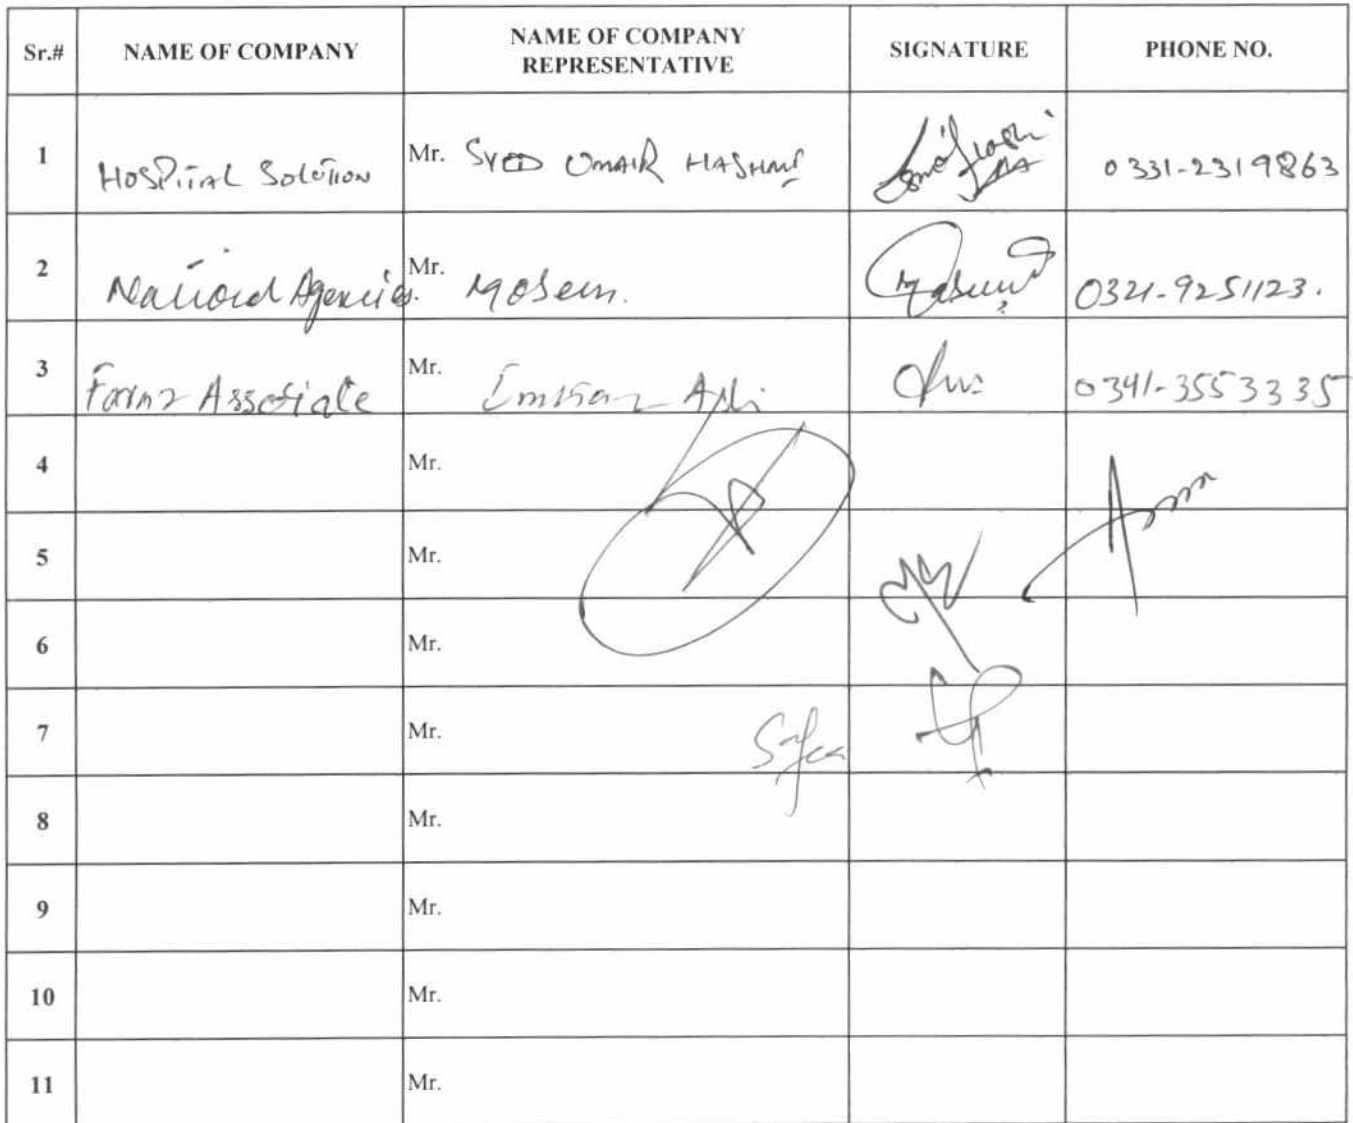 Sr.# NAME OF COMPANY NAME OF COMPANY REPRESENTATIVE SIGNATURE PHONE NO.
1 HOSPITAL SOLUTION Mr. SYED UMAIR HASHMI 0331-2319863
2 National Agencies. Mr. Mosem. 0321-9251123.
3 Farma Associate Mr. Imran 0341-3553335
4 Mr.
5 Mr.
6 Mr.
7 Mr.
8 Mr.
9 Mr.
10 Mr.
11 Mr.